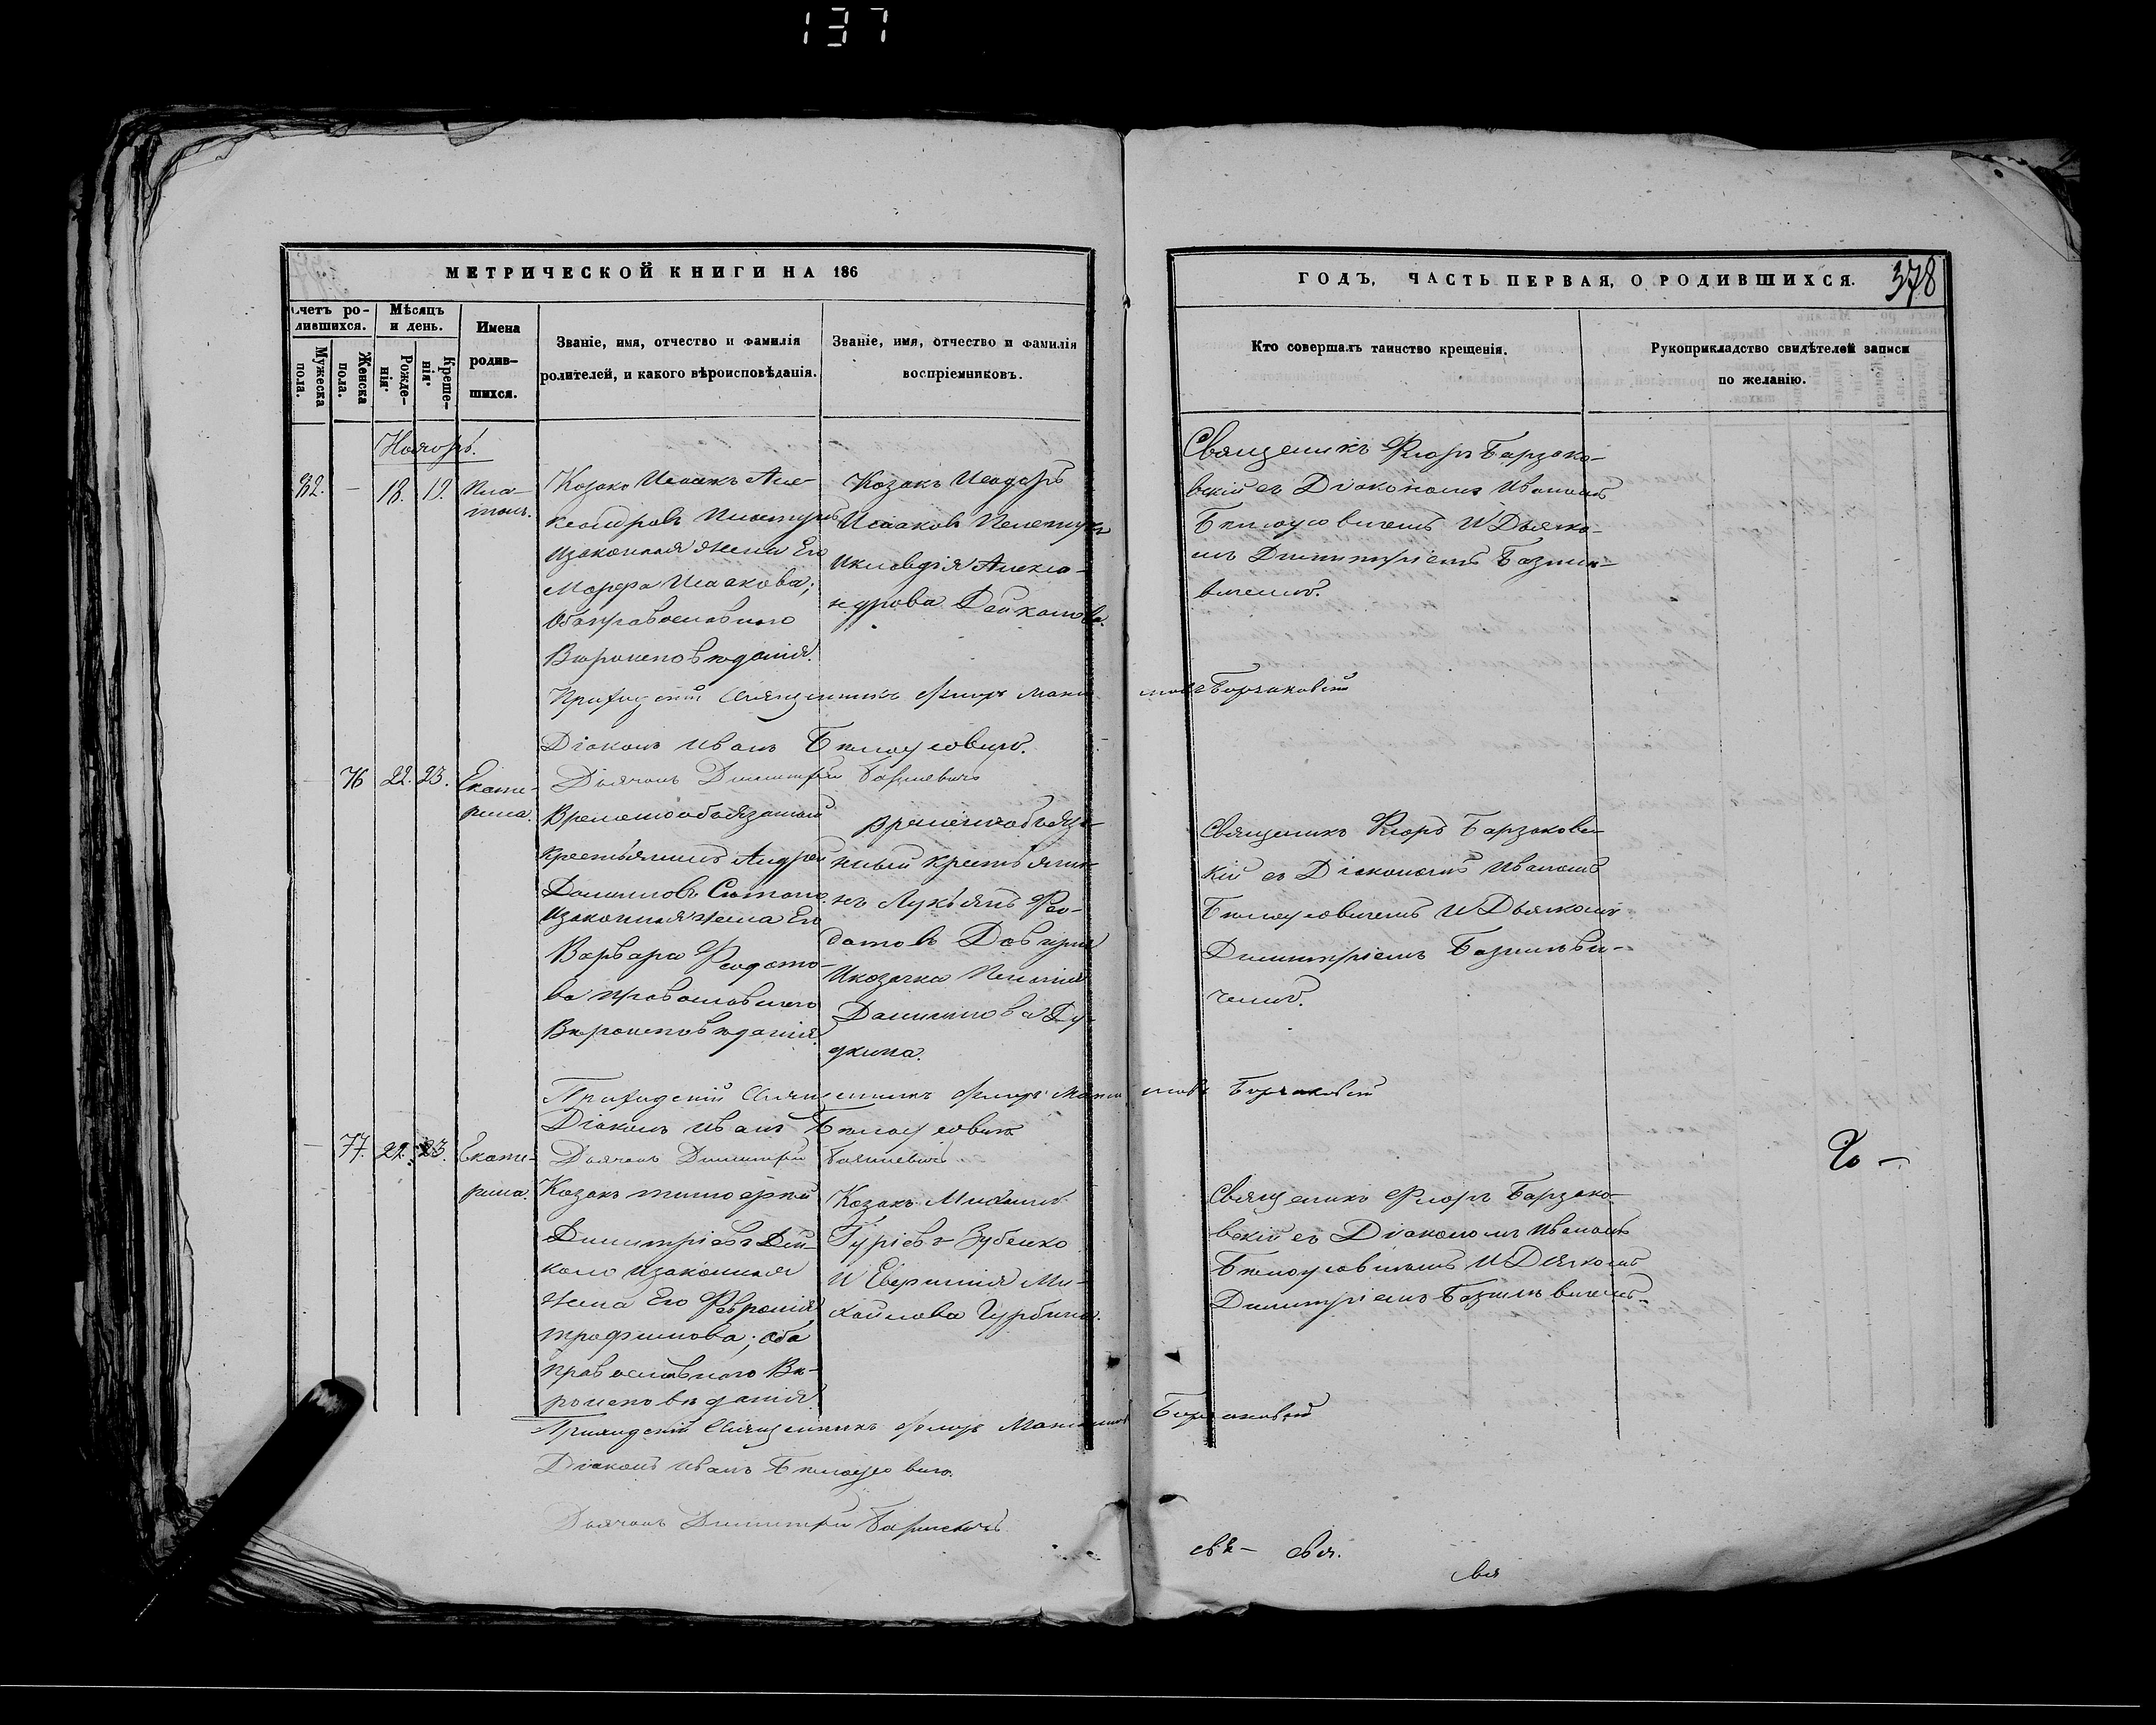 137
МЕТРИЧЕСКОЙ КНИГИ НА 186
ГОДЪ, ЧАСТЬ ПЕРВАЯ, О РОДИВШИХСЯ.
378
Счетъ ро-
дившихся.
Мужеска пола.
Женска пола.
Мѣсяцъ
и день.
Рожде-
нія.
Креще-
нія.
Имена
родив-
шихся.
Званіе, имя, отчество и фамилія
родителей, и какого вѣроисповѣданія.
Званіе, имя, отчество и фамилія
воспріемниковъ.
Кто совершалъ таинство крещенія.
Рукоприкладство свидѣтелей записи
по желанію.
Ноябрь.
82. — 18. 19. Пла-
тонъ.
Козакъ Исаакъ Але-
изаконная жена Его
Марфа Исаакова;
Оба православного
Вѣроисповѣданія.
Козакъ
Исааковъ
Иклавдія Алекса-
ндрова
Священикъ Флоръ Барзако-
вскій съ Діакономъ Иваномъ
Билоусовичемъ И Дьячко-
мъ Димитріемъ Базиле-
вичемъ.
Приходскій Священникъ Флоръ Максимовъ Борзаковскій
Діаконъ Иванъ Билоусовичъ.
Дьячокъ Димитрій Базилевичъ
— 76 22. 23. Екате-
рина.
Временнообязаный
крестьянинъ Андрей
Даниловъ
Изаконная жена Его
Варвара Федото-
ва православного
Вѣроисповѣданія.
Временнообяза-
ный крестьяни-
нъ Лукьянъ Фео-
датовъ
Икозачка
Данилова Ду-
дкина.
Священикъ Флоръ Барзаковс-
кій съ Діакономъ Иваномъ
Билоусовичемъ И Дьячкомъ
Димитріемъ Базилеви-
чемъ.
Приходскій Священникъ Флоръ Максимовъ Борзаковскій
Діаконъ Иванъ Билоусовичъ
Дьячокъ Димитрій Базилевичъ
— 77. 22. 23. Екате-
рина.
Козакъ тимоѳей
Димитріевъ Дей-
кало изаконная
жена Его Февронія
трофимова; оба
православного Вѣ-
роисповѣданія.
Козакъ Михаилъ
Гуріевъ Зубенко
И Евфимія Ми-
хайлова
Священикъ Флоръ Барзако-
вскій съ Діакономъ Иваномъ
Билоусовичемъ И Дьячкомъ
Димитріемъ Базилевичемъ.
Приходскій Священникъ Флоръ Максимовъ Борзаковскій
Діаконъ Иванъ Билоусовичъ.
Дьячокъ Димитрій Базилевичъ